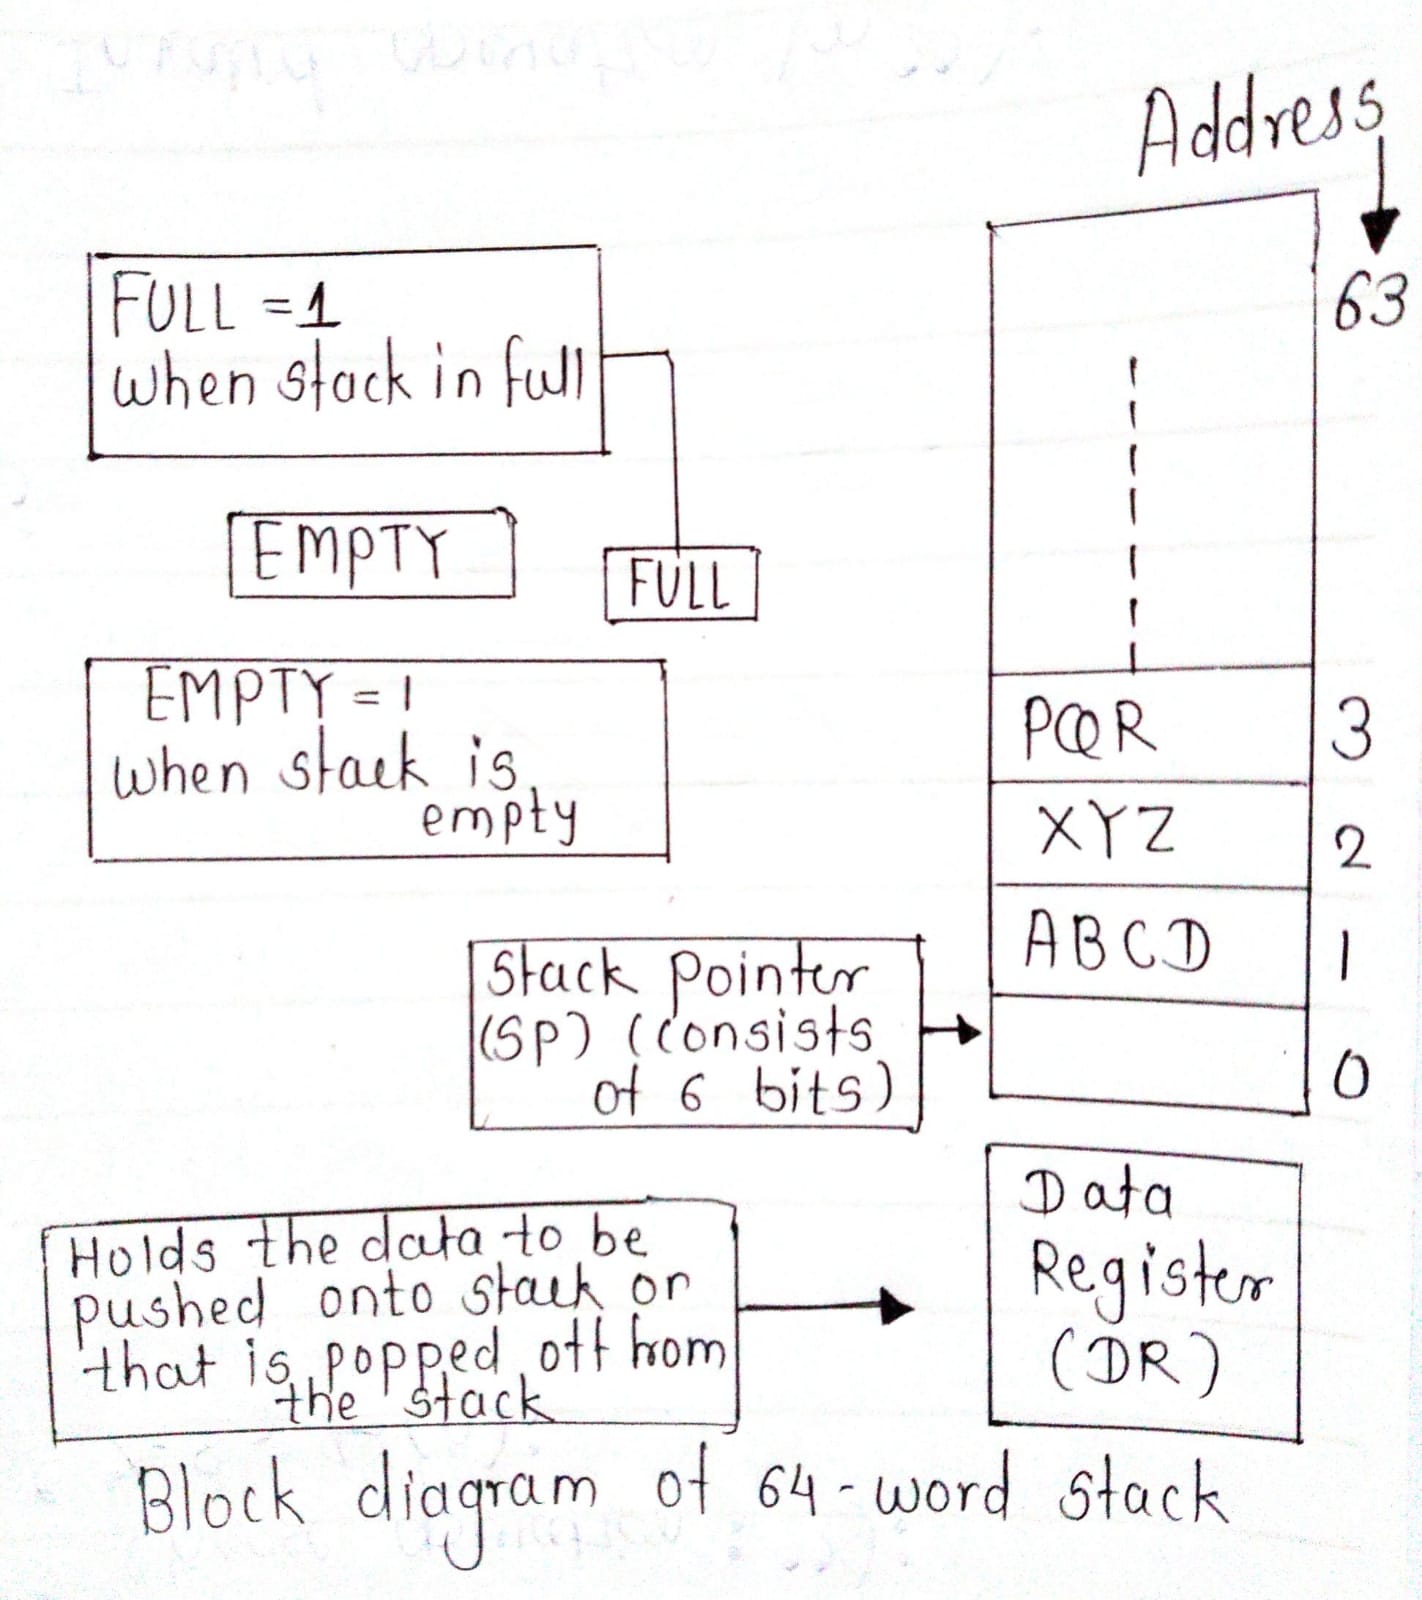 Address
63
FULL = 1
when stack in full
EMPTY
FULL
EMPTY = 1
when stack is
empty
PQR
3
XYZ
2
ABCD
1
Stack pointer
(SP) (consists
of 6 bits)
0
Data
Register
(DR)
Holds the data to be
pushed onto stack or
that is popped off from
the stack
Block diagram of 64-word stack